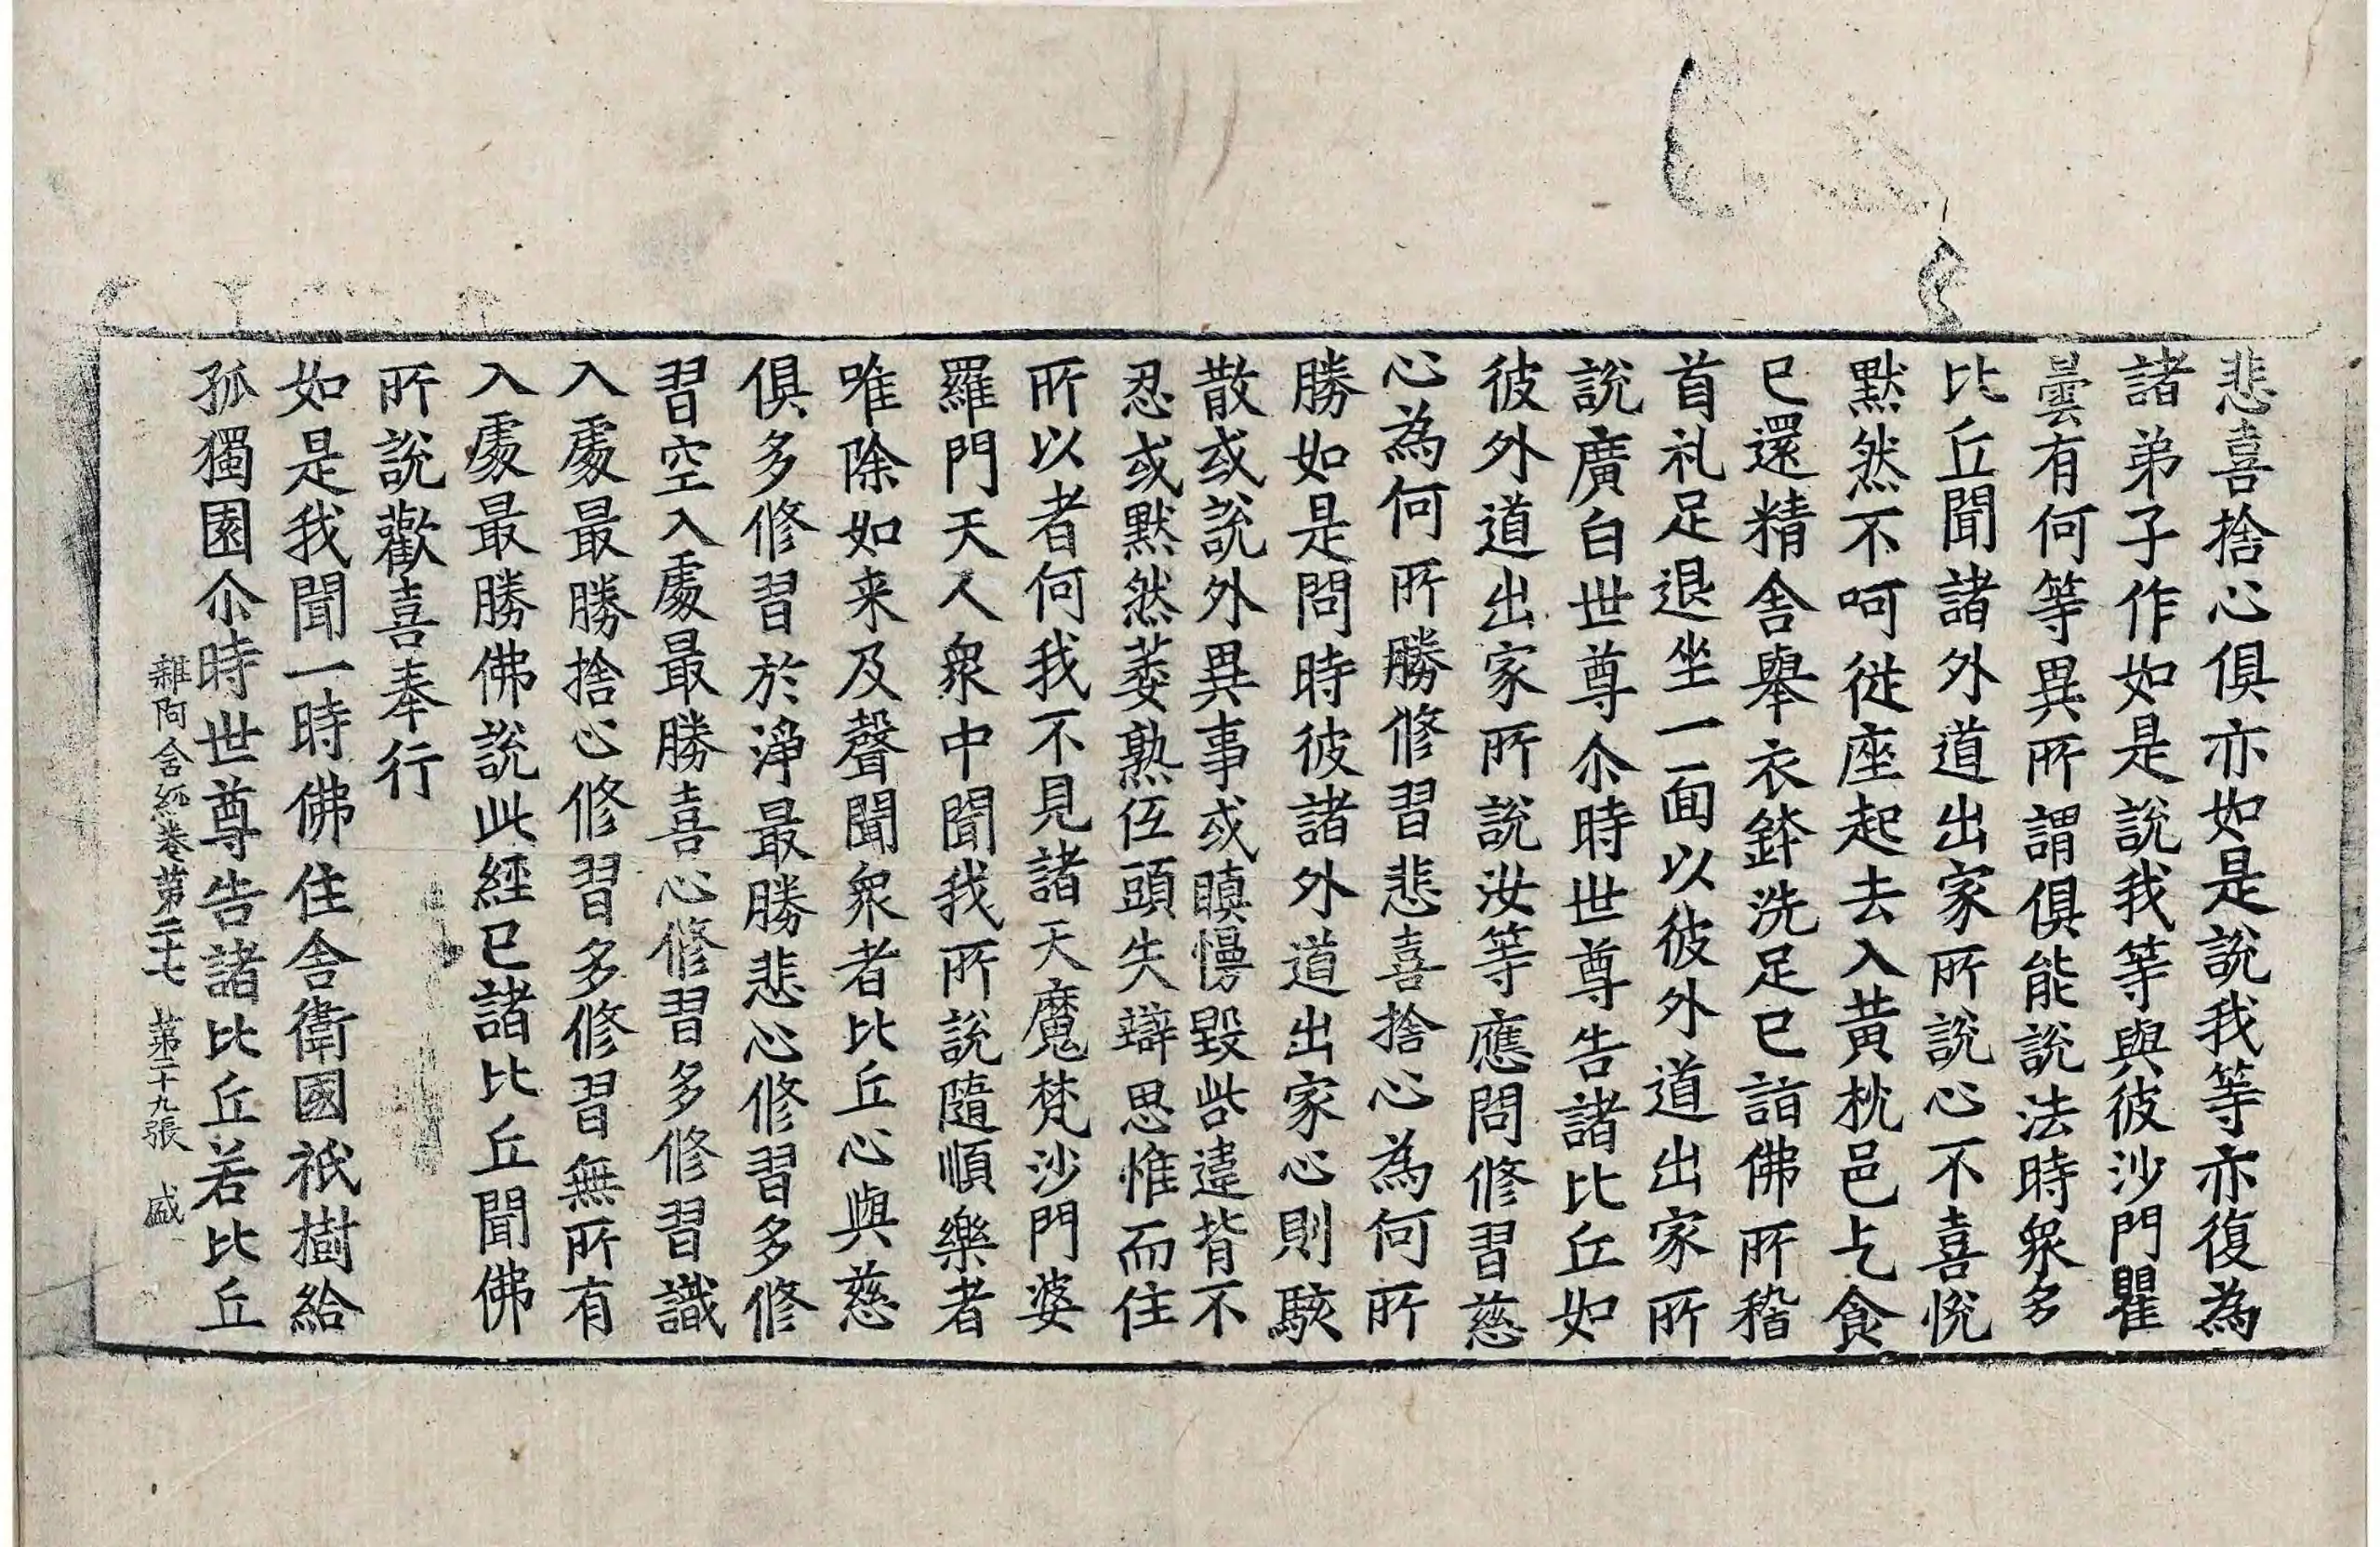 悲喜捨心俱亦如是說我等亦復為
諸弟子作如是說我等與彼沙門瞿
曇有何等異所謂俱能說法時衆多
比丘聞諸外道出家所說心不喜悅
默然不呵從座起去入黃枕邑乞食
已還精舍舉衣鉢洗足已詣佛所稽
首礼足退坐一面以彼外道出家所
說廣白世尊尒時世尊告諸比丘如
彼外道出家所說汝等應問修習慈
心為何所勝修習悲喜捨心為何所
勝如是問時彼諸外道出家心則駭
散或說外異事或瞋慢毀呰違背不
忍或默然萎熟伍頭失辯思惟而住
所以者何我不見諸天魔梵沙門婆
羅門天人衆中聞我所說隨順樂者
唯除如来及聲聞衆者比丘心與慈
俱多修習於淨最勝悲心修習多修
習空入處最勝喜心修習多修習識
入處最勝捨心修習多修習無所有
入處最勝佛說此經已諸比丘聞佛
所說歡喜奉行
如是我聞一時佛住舍衛國祇樹給
孤獨園尒時世尊告諸比丘若比丘
雜阿含經卷第二十七 第二十九張 盛